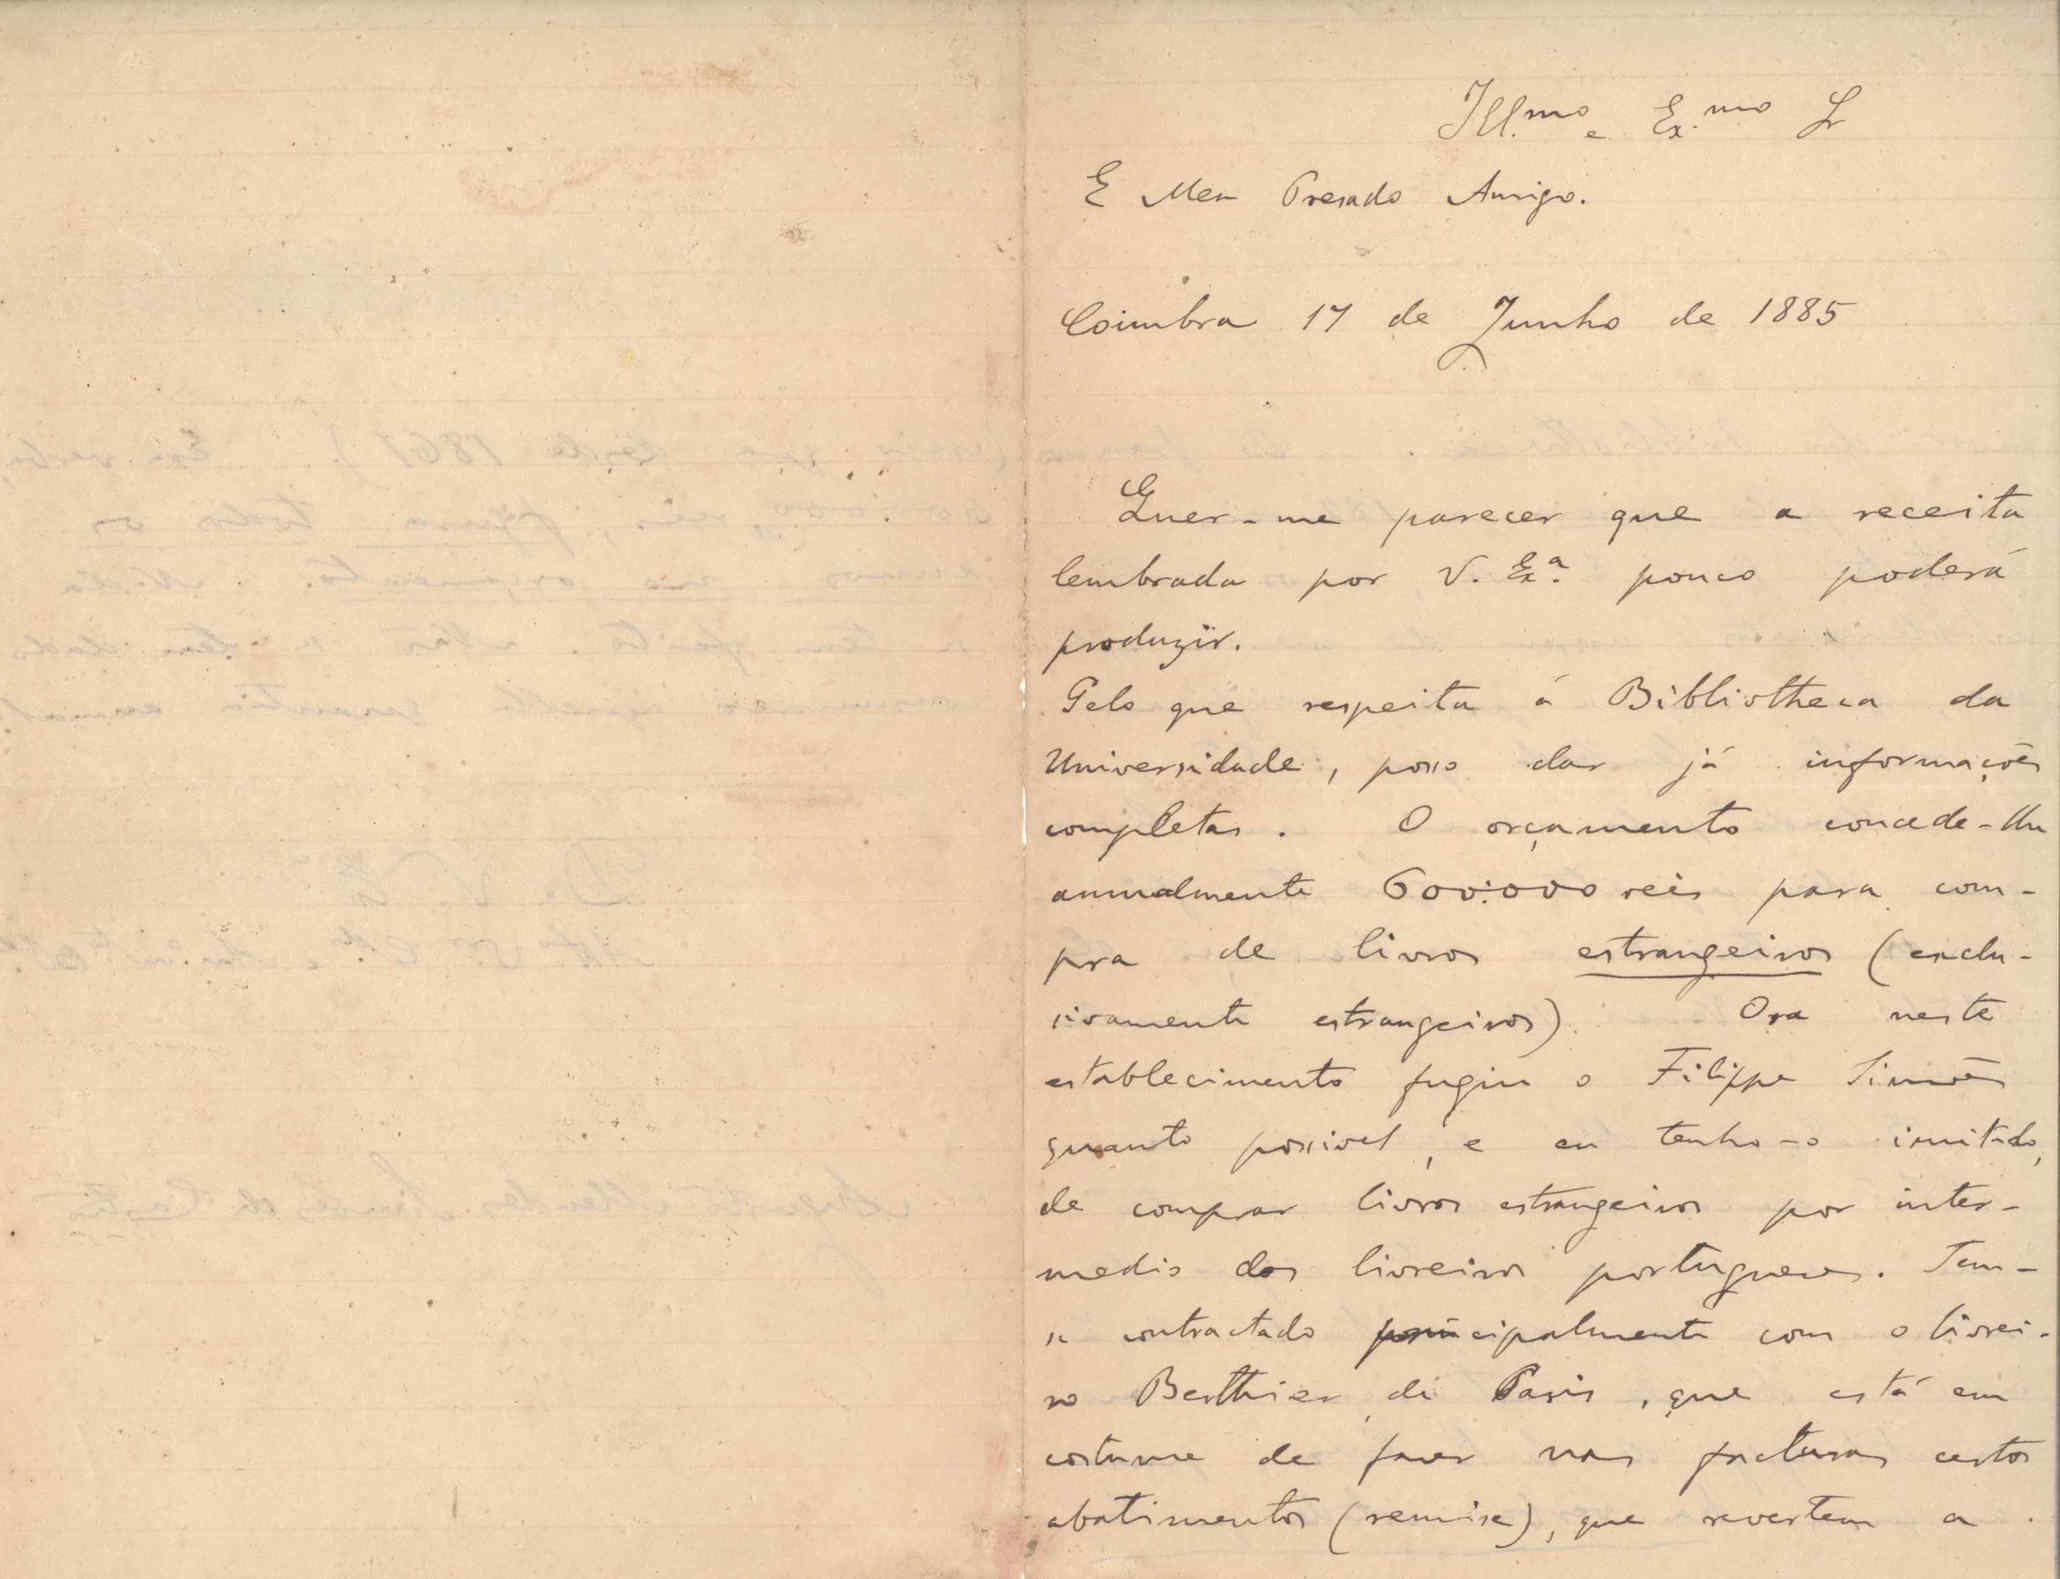 Ill.mo e Ex.mo Sr
E Meu Presado Amigo.
Coimbra 17 de Junho de 1885
Quer-me parecer que a receita
lembrada por V. Ex.ª pouco poderá
produzir.
Pelo que respeita á Bibliotheca da
Universidade, posso dar já informações
completas. O orçamento concede-lhe
annualmente 600:000 reis para com-
pra de livros estrangeiros (exclu-
sivamente estrangeiros). Ora neste
establecimento fugiu o Filippe Simões
quanto possivel, e eu tenho-o imitado,
de comprar livros estrangeiros por inter-
medio dos livreiros portugueses. Tem-
se contractado principalmente com o livrei-
ro Berthier de Paris, que está em
costume de fazer nas facturas certos
abatimentos (remise), que revertem a